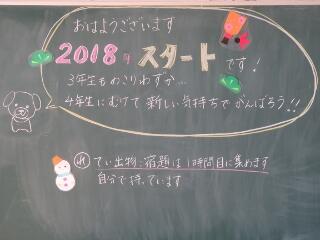 おはようございます
2018年 スタート です!
3年生ものこりわずか…
4年生にむけて 新しい気持ちで がんばろう!!
れ てい出物・宿題は 1時間目に集めます
自分で持っています